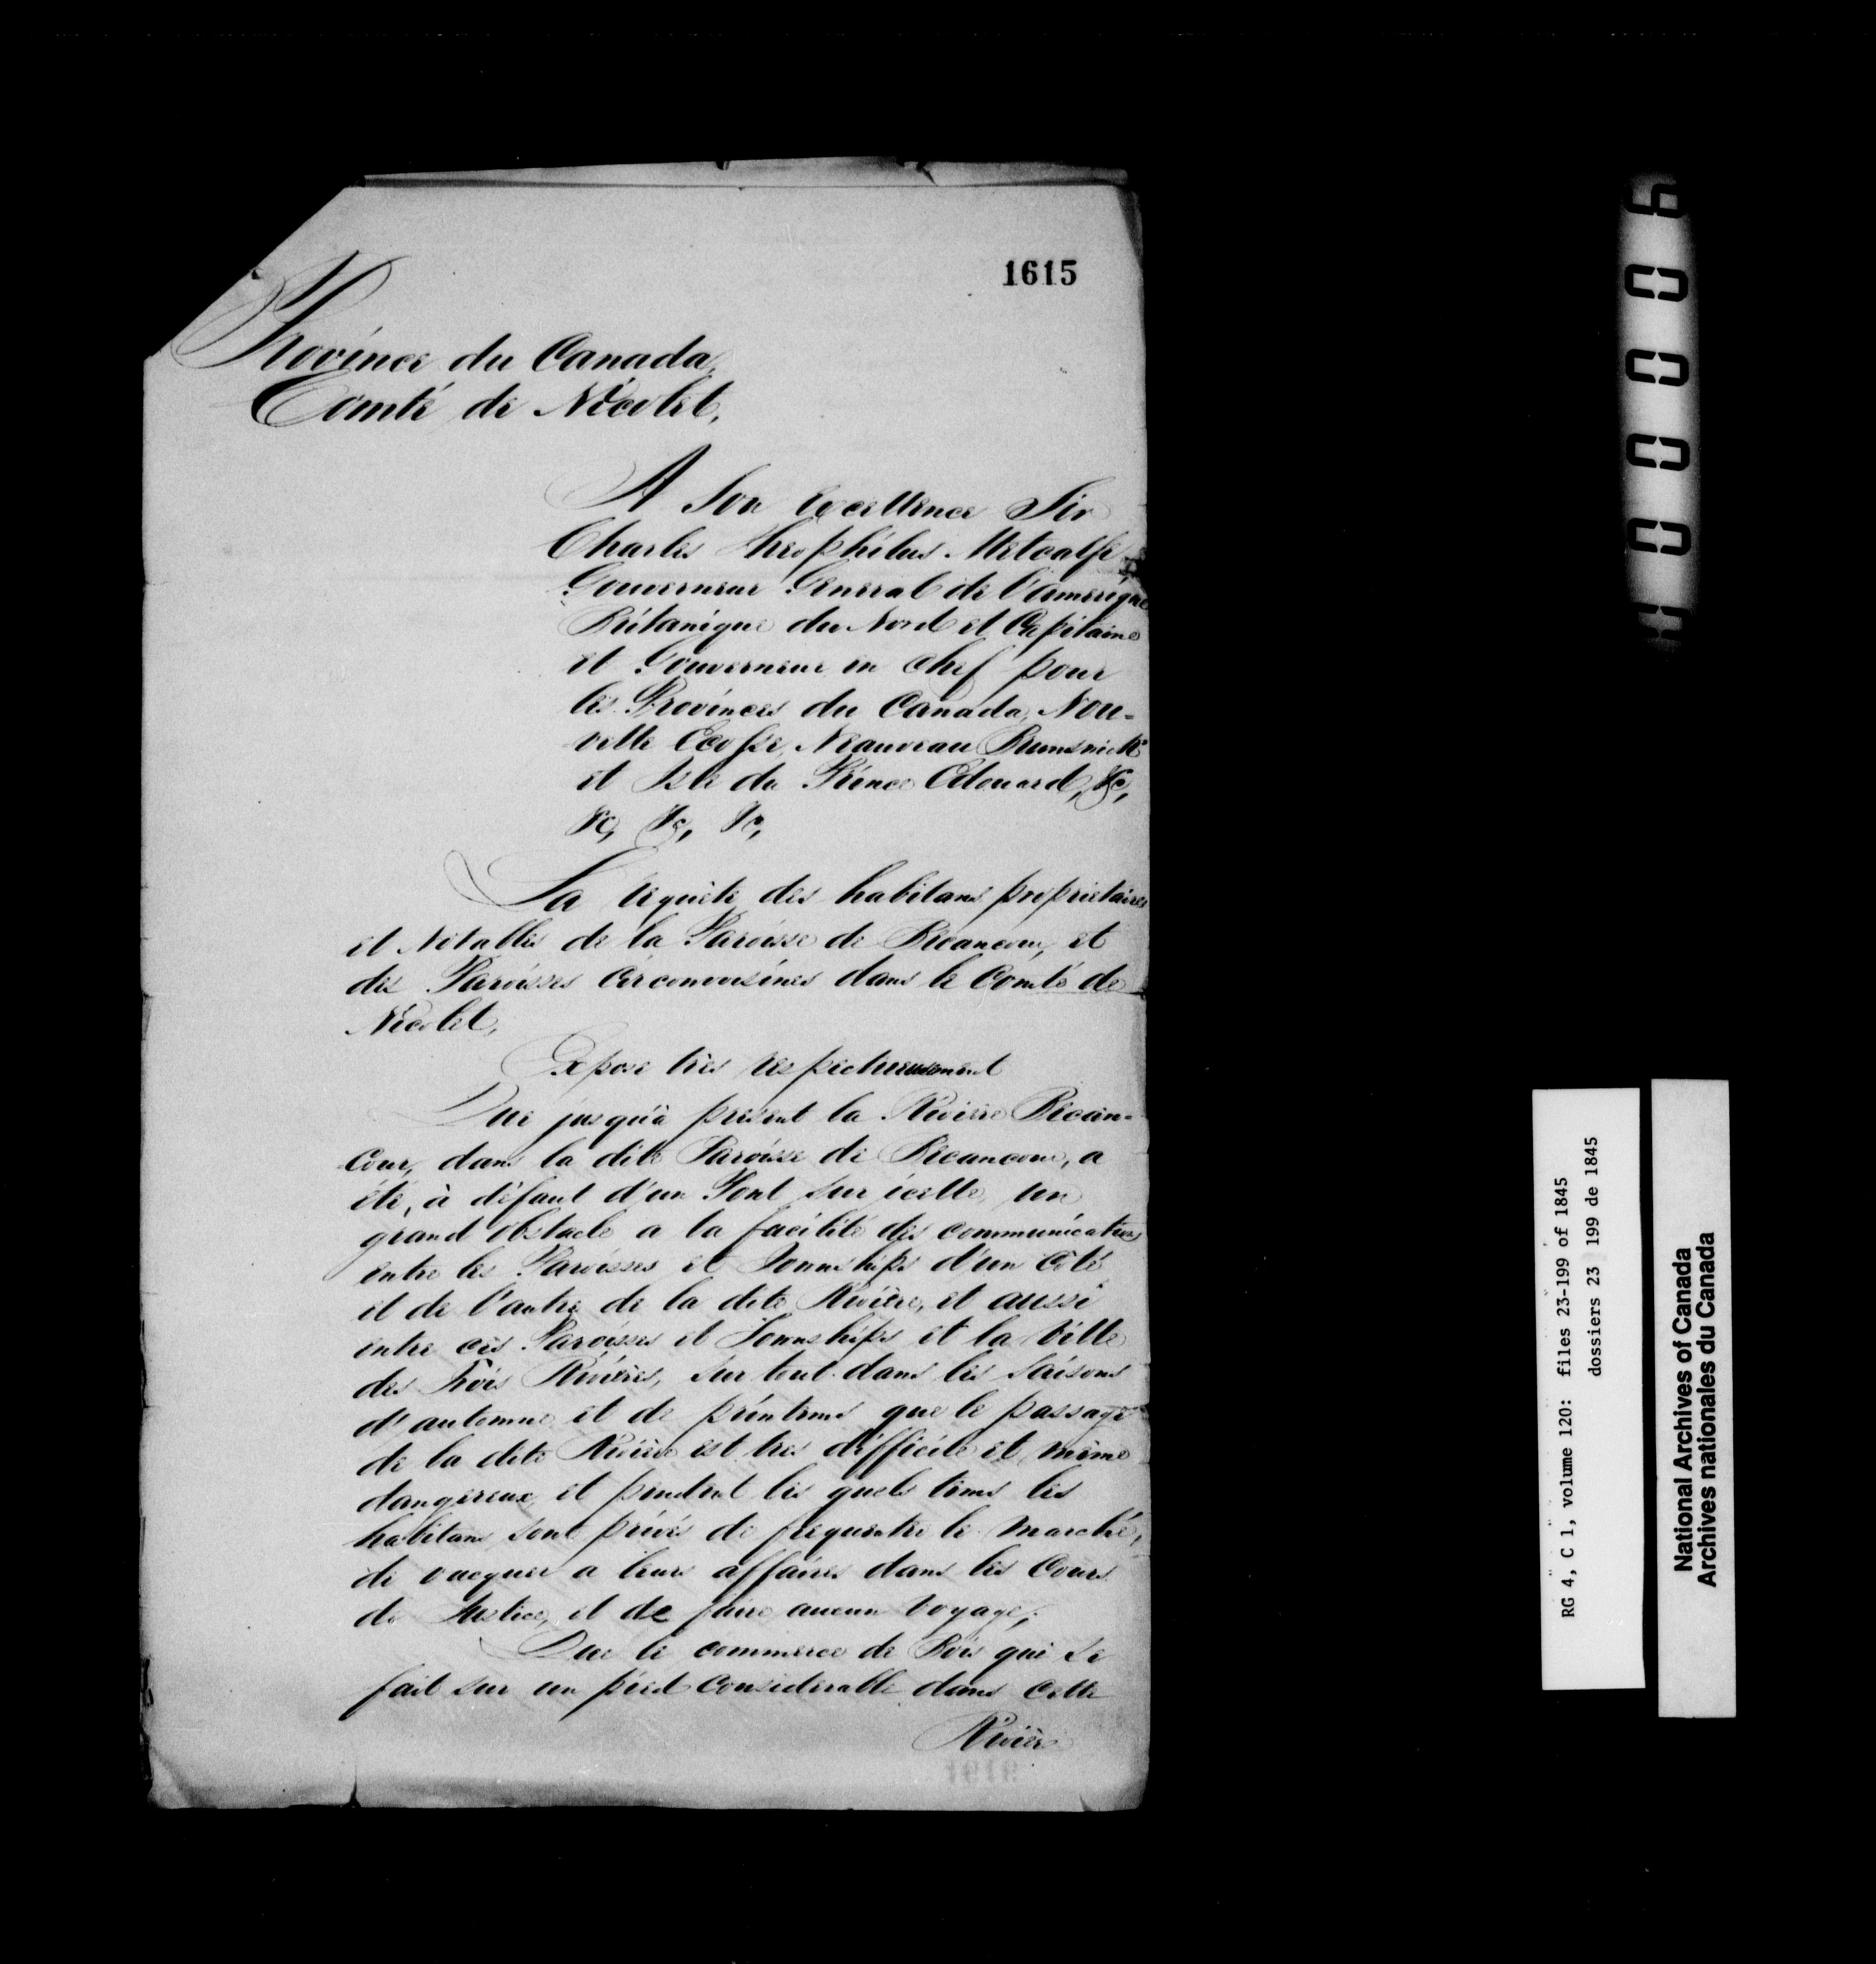 1615
Province du Canada,
Comté de Nicolet,
A Son Excellence Sir
Charles Theophilus Metcalfe
Gouverneur General de l'amerique
Britanique du Nord et Capitaine
et Gouverneur en chef pour
les Provinces du Canada, Nou=
velle Ecosse, Neauveau Brunswick
et Isle du Prince Edouard, &c,
&c, &c, &c,
La requête des habitans proprietaires
et Notables de la Paroisse de Bécancour, et
des Paroisses circonvoisines dans le Comté de
Nicolet,
Expose très respectueusement
Que jusqu'à present la Rivière Bécan=
cour, dans la dite Paroisse de Bécancour, a
été, à défaut d'un Pont sur icelle, un
grand obstacle a la facilité des communications
entre les Paroisses et Townships d'un côté
et de l'autre de la dite Rivière, et aussi
entre ces Paroisses et Townships et la Ville
des Trois Rivières, sur tout dans les saisons
d'automne et de printems que le passage
de la dite Rivière est très difficile et même
dangereux, et pendant les quels tems les
habitans sont privés de frequenter le marché,
de vacquer a leurs affaires dans les Cours
de Justice, et de faire aucun voyage;
Que le commerce de Bois qui se
fait sur un pied considerable dans cette
Rivière
1616
RG 4, C 1, volume 120: files 23-199 of 1845
dossiers 23 199 de 1845
National Archives of Canada
Archives nationales du Canada